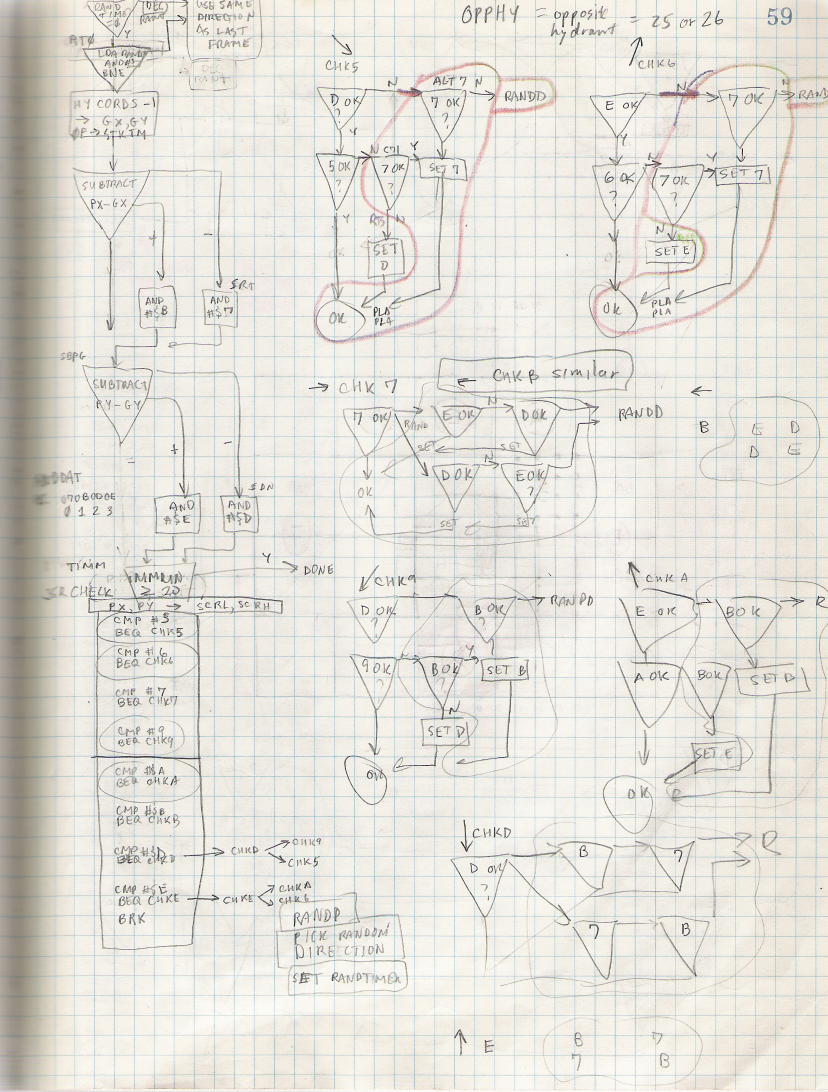 OPPHY = opposite hydrant = 25 or 26
59
RAND TIME =0
DEC RANT
USE SAME
DIRECTION
AS LAST
FRAME
Y
BNE
DEC
RANT
HY CORDS -1
→ GX,GY
SUBTRACT
PX-GX
+
-
AND
#$B
$RT
AND
#$7
SUBTRACT
PY-GY
+
-
=
AND
#$E
$DN
AND
#$D
070B0D0E
0 1 2 3
TIMM
≥ 20
Y
DONE
JSR CHECK
PX, PY → SCRL, SCRH
CMP #5
BEQ CHK5
CMP #6
BEQ CHK6
CMP #7
BEQ CHK7
CMP #9
BEQ CHK9
CMP #$A
BEQ CHKA
CMP #$B
BEQ CHKB
CMP #$D
BEQ CHKD
→ CHKD
CHK9
CHK5
CMP #$E
BEQ CHKE
→ CHKE
CHKA
CHK6
BRK
RANDD
PICK RANDOM
DIRECTION
SET RANDTIMER
CHK5
D OK
?
N
ALT 7
7 OK
?
N
RANDD
Y
5 OK
?
N
7 OK
?
Y
SET 7
Y
N
SET
D
OK
PLA
PLA
CHK6
E OK
N
7 OK
N
RAND
Y
6 OK
?
7 OK
?
Y
SET 7
N
SET E
OK
PLA
PLA
→ CHK 7
← CHKB similar
7 OK
RAND
E OK
N
D OK
RANDD
SET
SET
D OK
N
E OK
?
OK
SET
SET
←
B E D
D E
CHK9
D OK
?
B OK
?
RANDD
9 OK
?
B OK
?
Y
SET B
N
SET D
OK
CHKA
E OK
B OK
R
A OK
B OK
SET D
SET E
OK
CHKD
D OK
?
B
7
R
7
B
↑ E
B 7
7 B